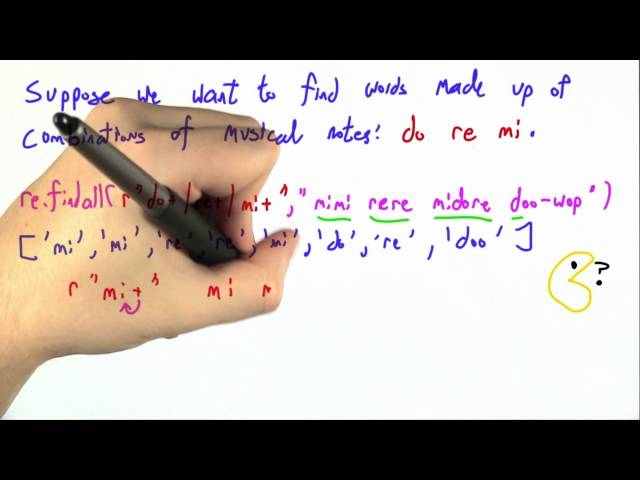 Suppose we want to find words made up of
combinations of musical notes: do re mi.
re.findall(r"do+|re+|mi+", "mimi rere midore doo-wop")
['mi', 'mi', 're', 're', 'mi', 'do', 're', 'doo']
r"mi+" mi
?